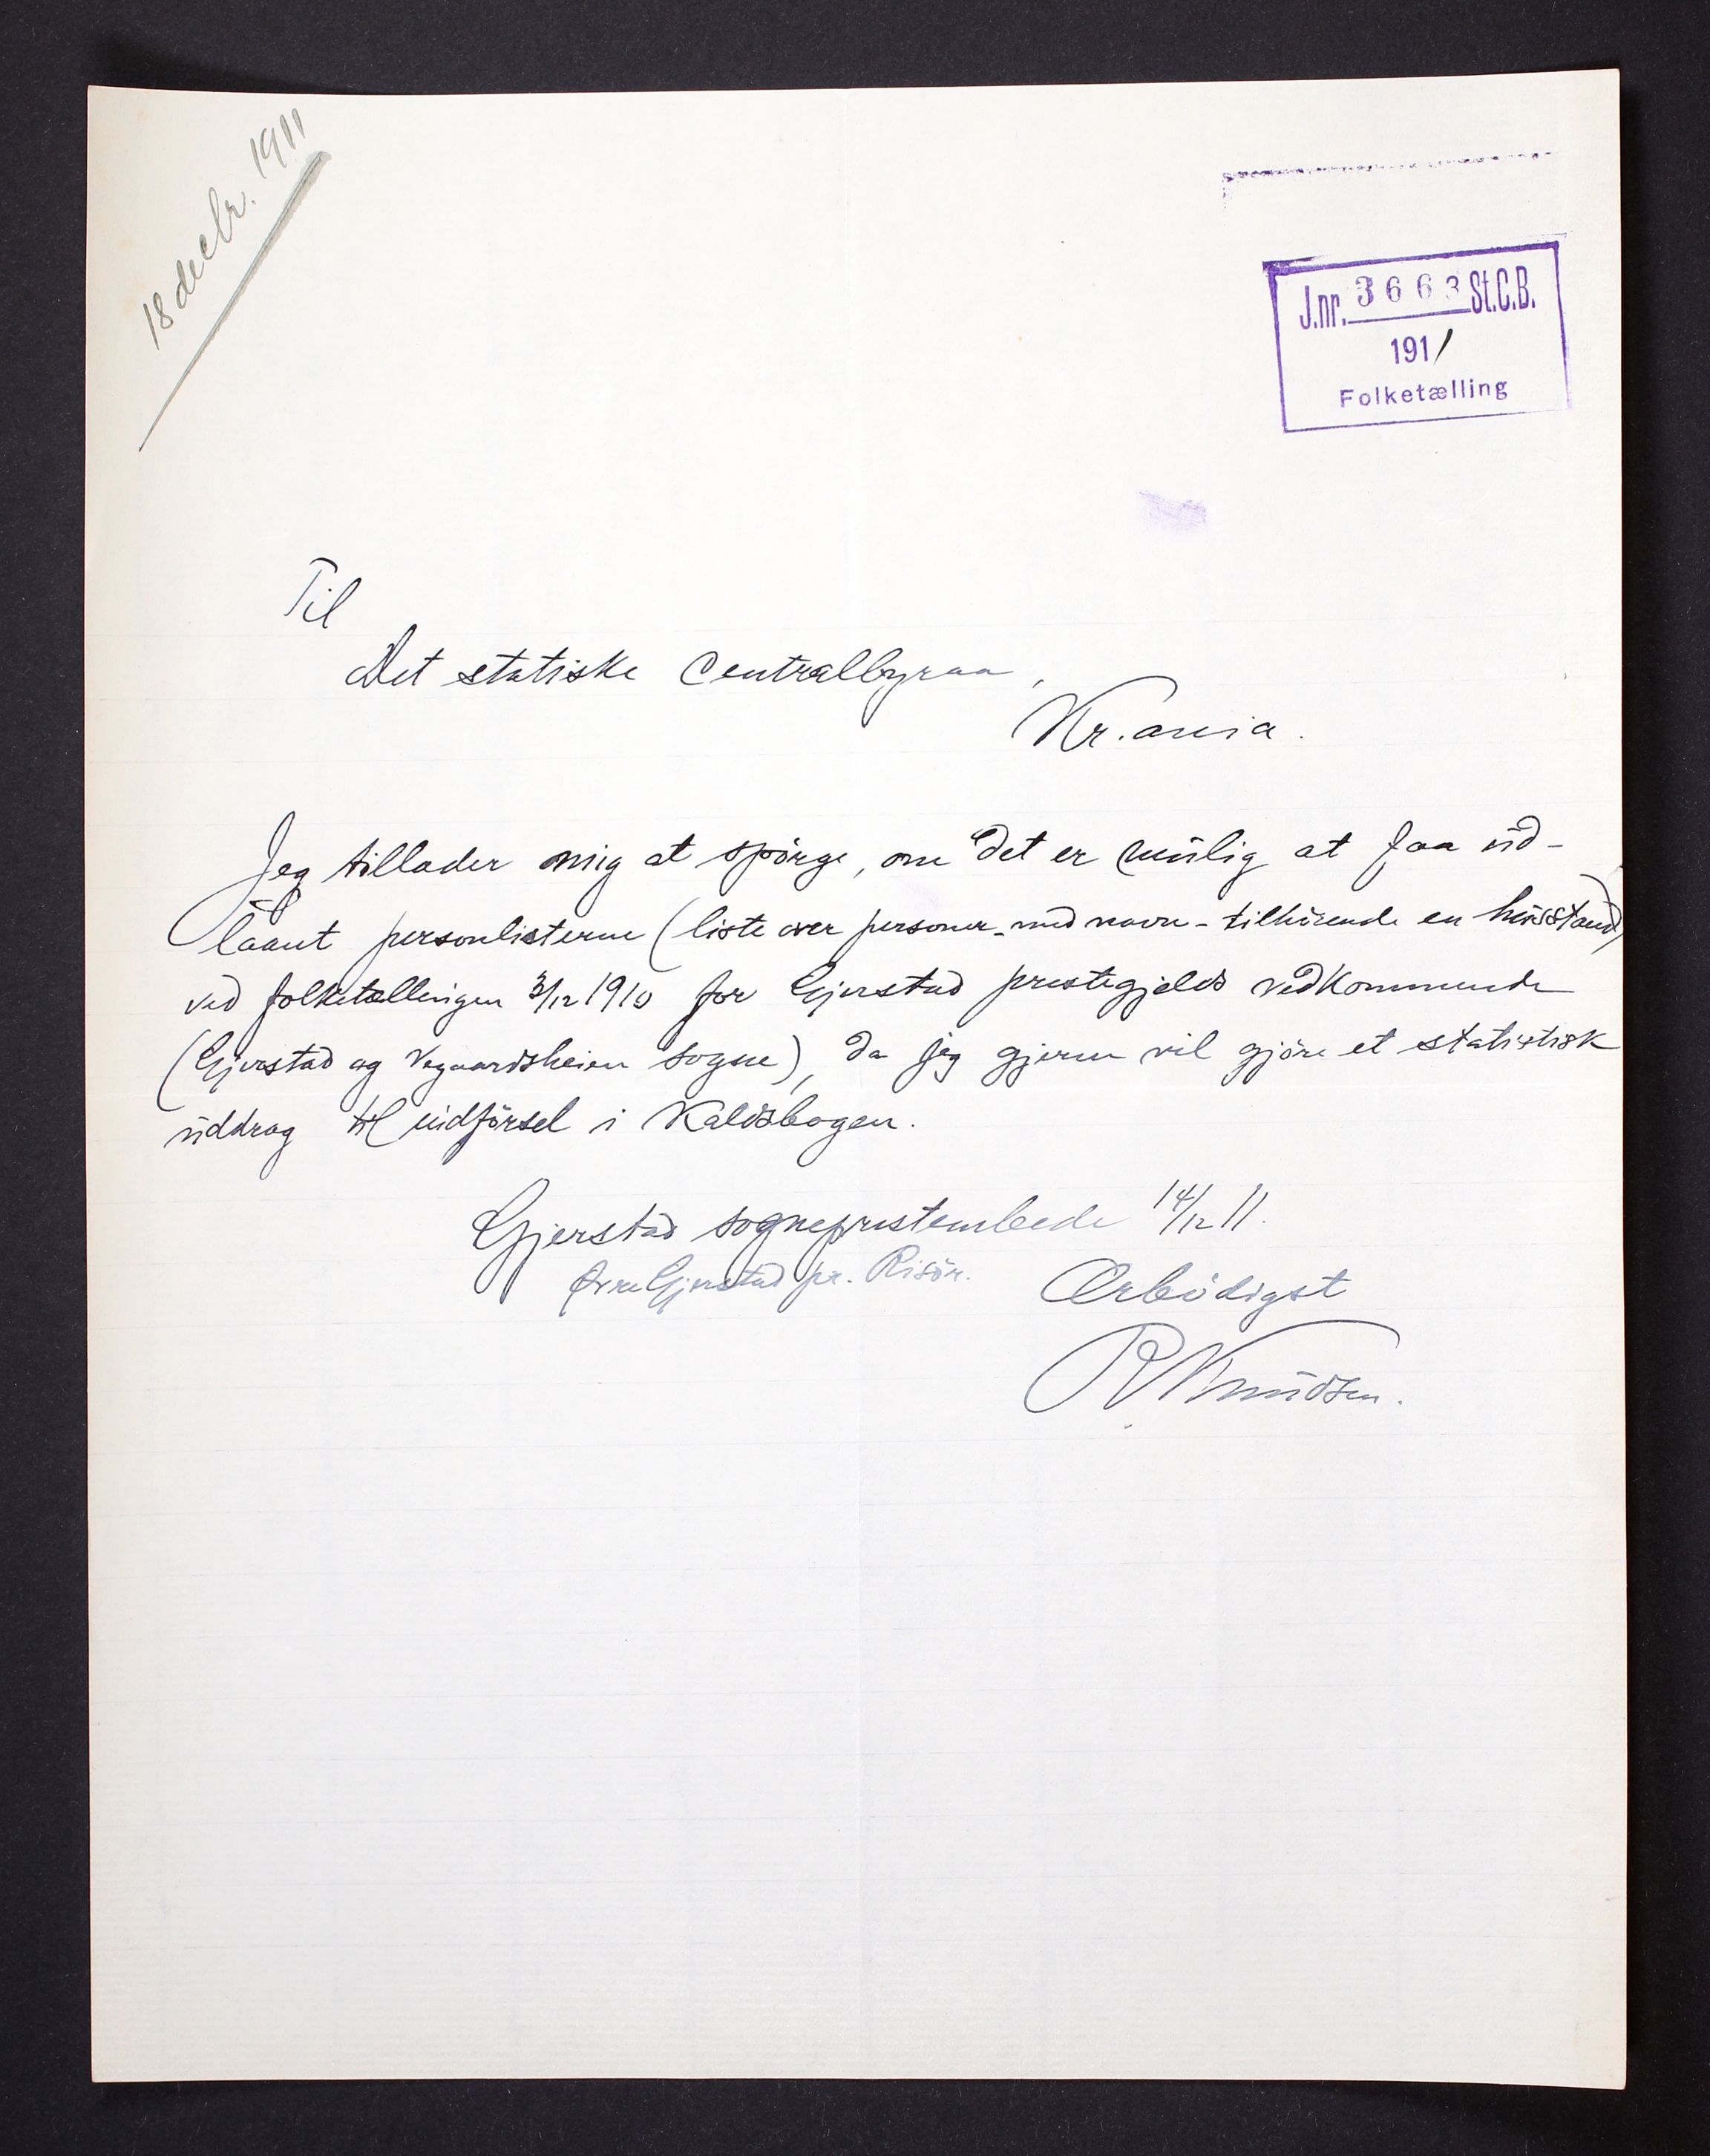 18 decbr. 1911
J.nr. 3663 St.C.B.
191/
Folketælling
Til
Det statiske Centralbyraa,
Kr.ania.
Jeg tillader mig at spörge, om det er mulig at faa ud-
laant personlisterne (liste over personer - med navn - tilhörende en husstand)
ved folketællingen 3/12 1910 for Gjerstad prestegjelds vedkommende
(Gjerstad og Vegaardsheien sogne), da jeg gjerne vil gjöre et statistisk
uddrag til indförsel i Kaldsbogen.
Gjerstad sogneprestembede 14/12 11.
Øvre Gjerstad pr. Risör.
Ærbödigst
R Knudsen.